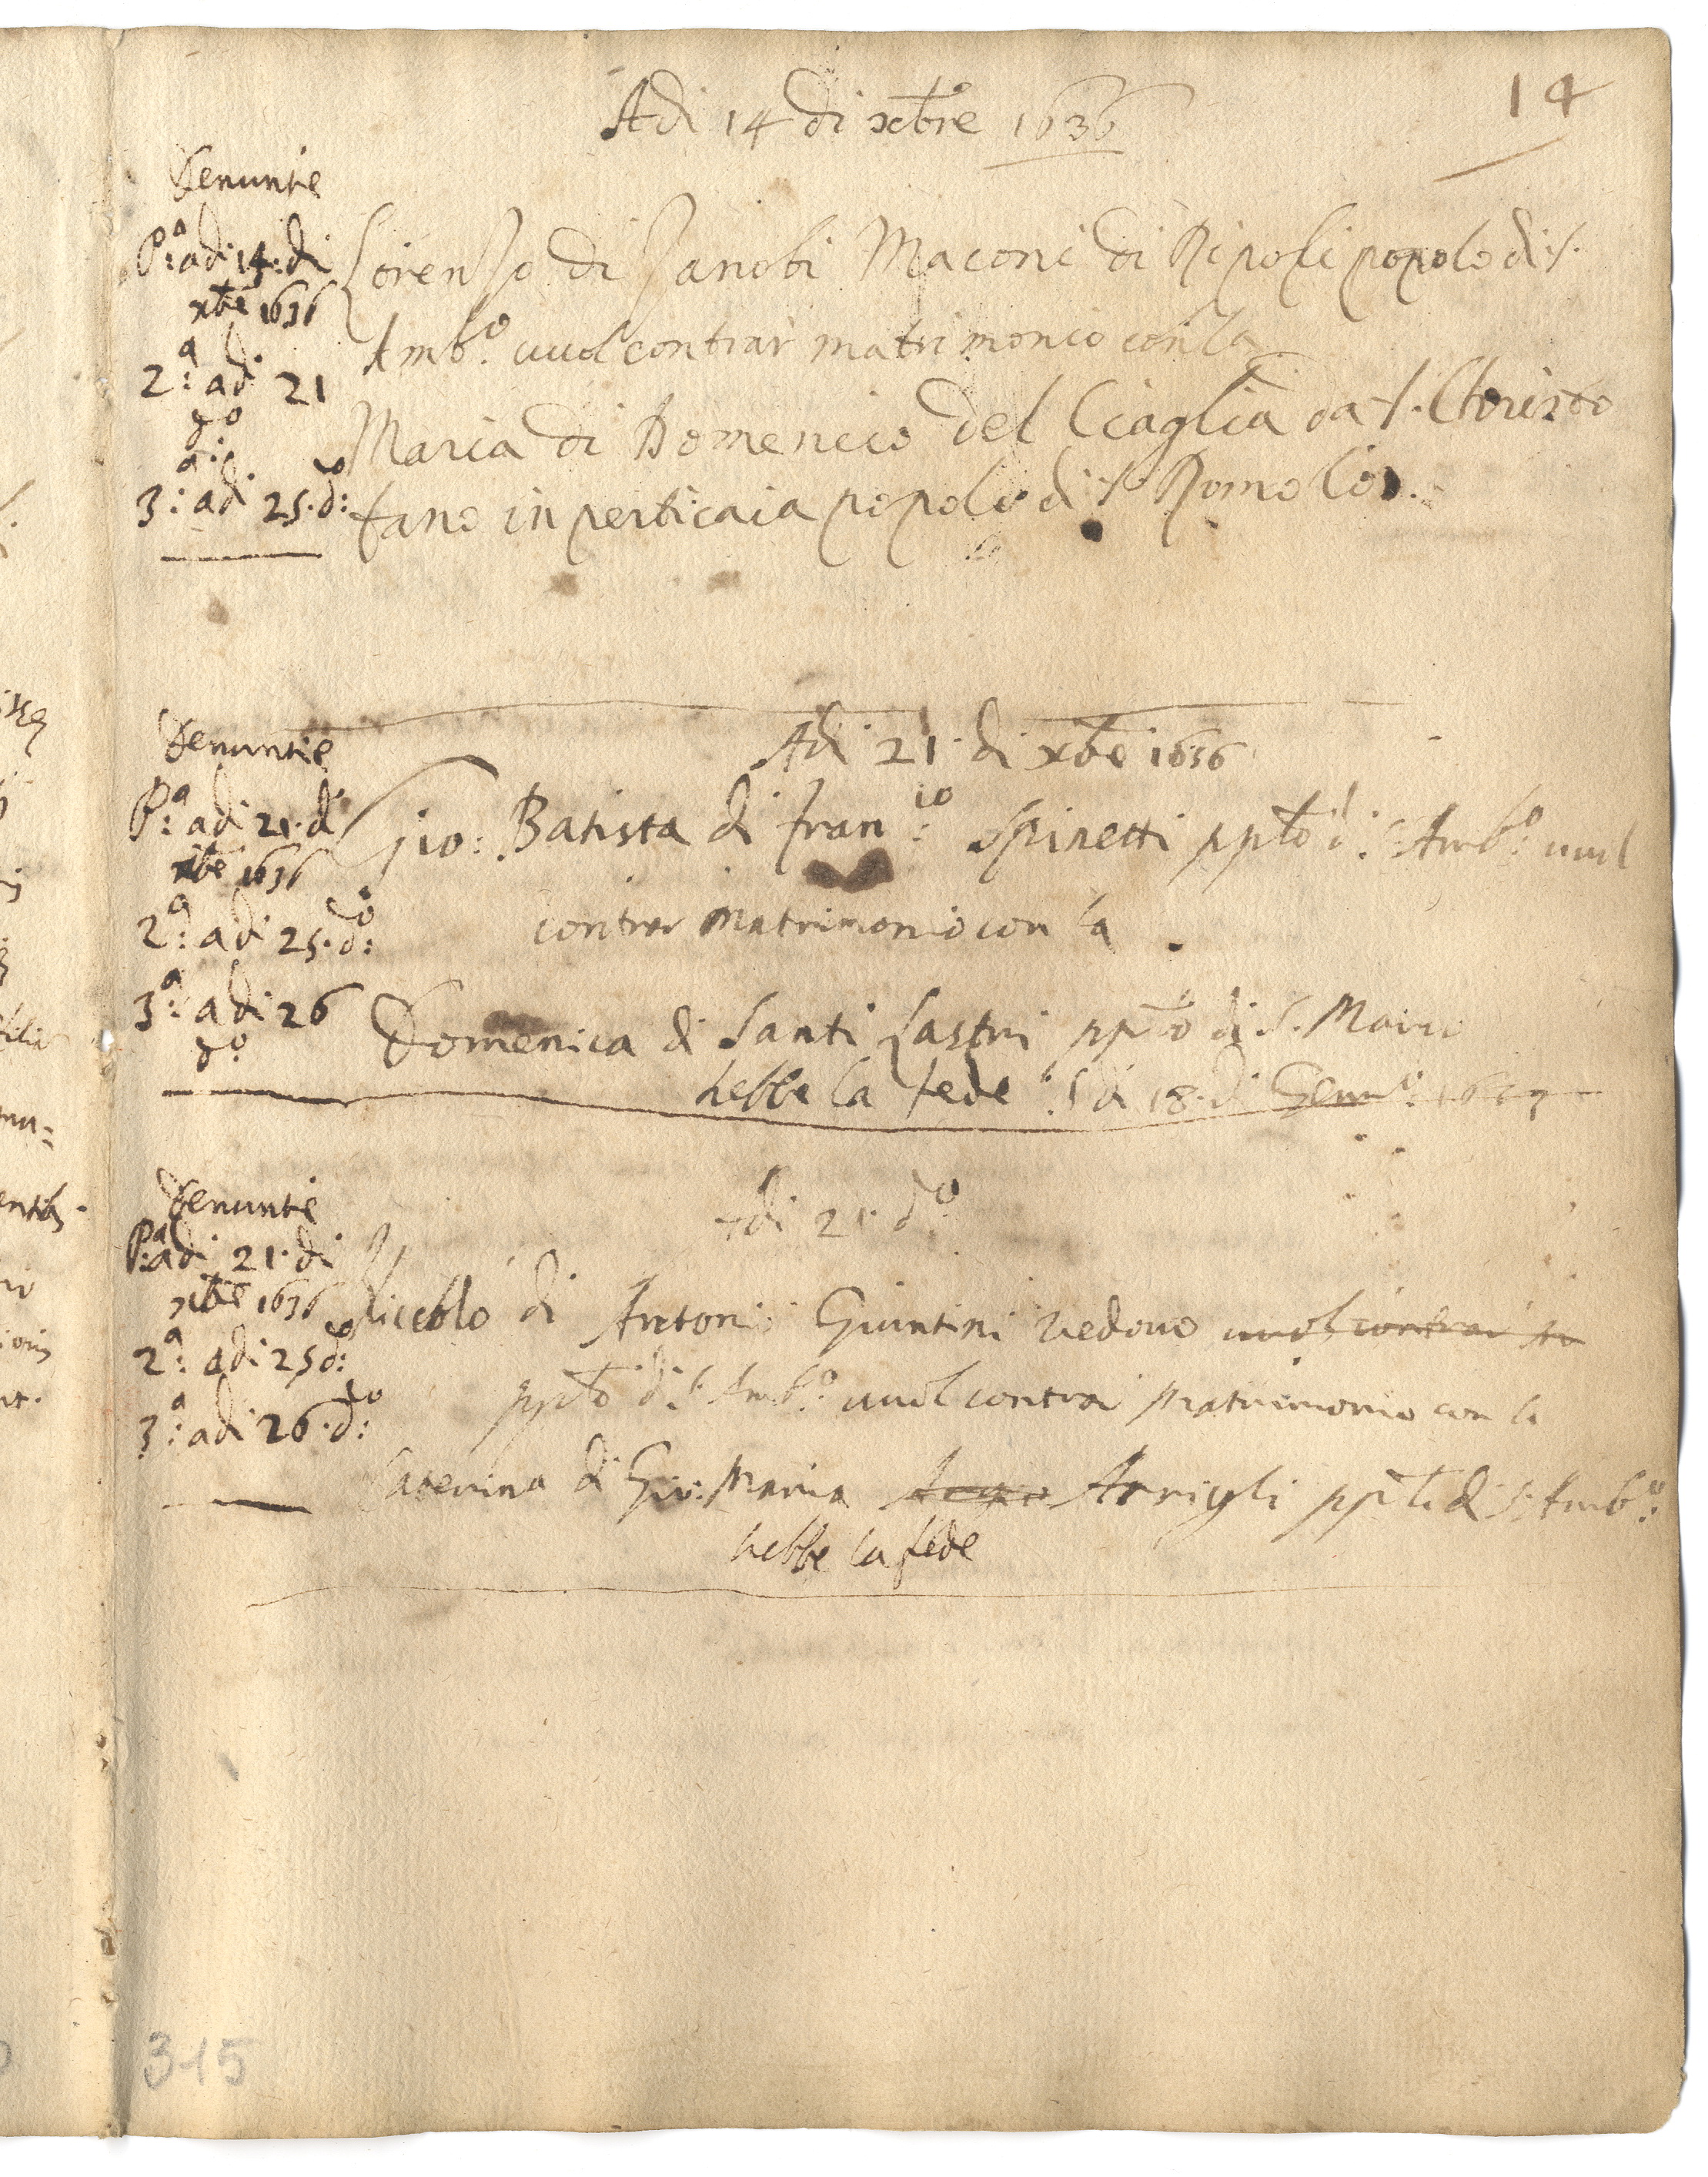 14
Adi 14 di xbre 1636
Denuntie
P.a adi 14. di
xbre 1636
2.a adi 21
do
3.a adi 25. do:
Lorenzo di Zanobi Maconi di Ripoli popolo di S.
Amb.o vuol contrar matrimonio con la
Maria di Domenico del Ciaglia da S. Christo
fano in perticaia popolo di S. Romolo.
Adi 21. di xbre 1636
Denuntie
P.a adi 21. di
xbre 1636
2.a adi 25. do:
3.a adi 26
do
Gio: Batista di Fran.co Spinetti ppto di S. Amb.o vuol
contrar matrimonio con la
Domenica di Santi Lastri ppto di S.
hebbe la fede adi 18. di Genn.o 1637
Denuntie
P.a adi 21. di
xbre 1636
2.a adi 25 do:
3.a adi 26. do:
Adi 21. do
Niccolo di Antonio Giuntini vedovo vuol contrar
ppto di S. Amb.o vuol contrar matrimonio con la
Caterina di Gio: Maria Arrigli ppto di S. Amb.o
hebbe la fede
315